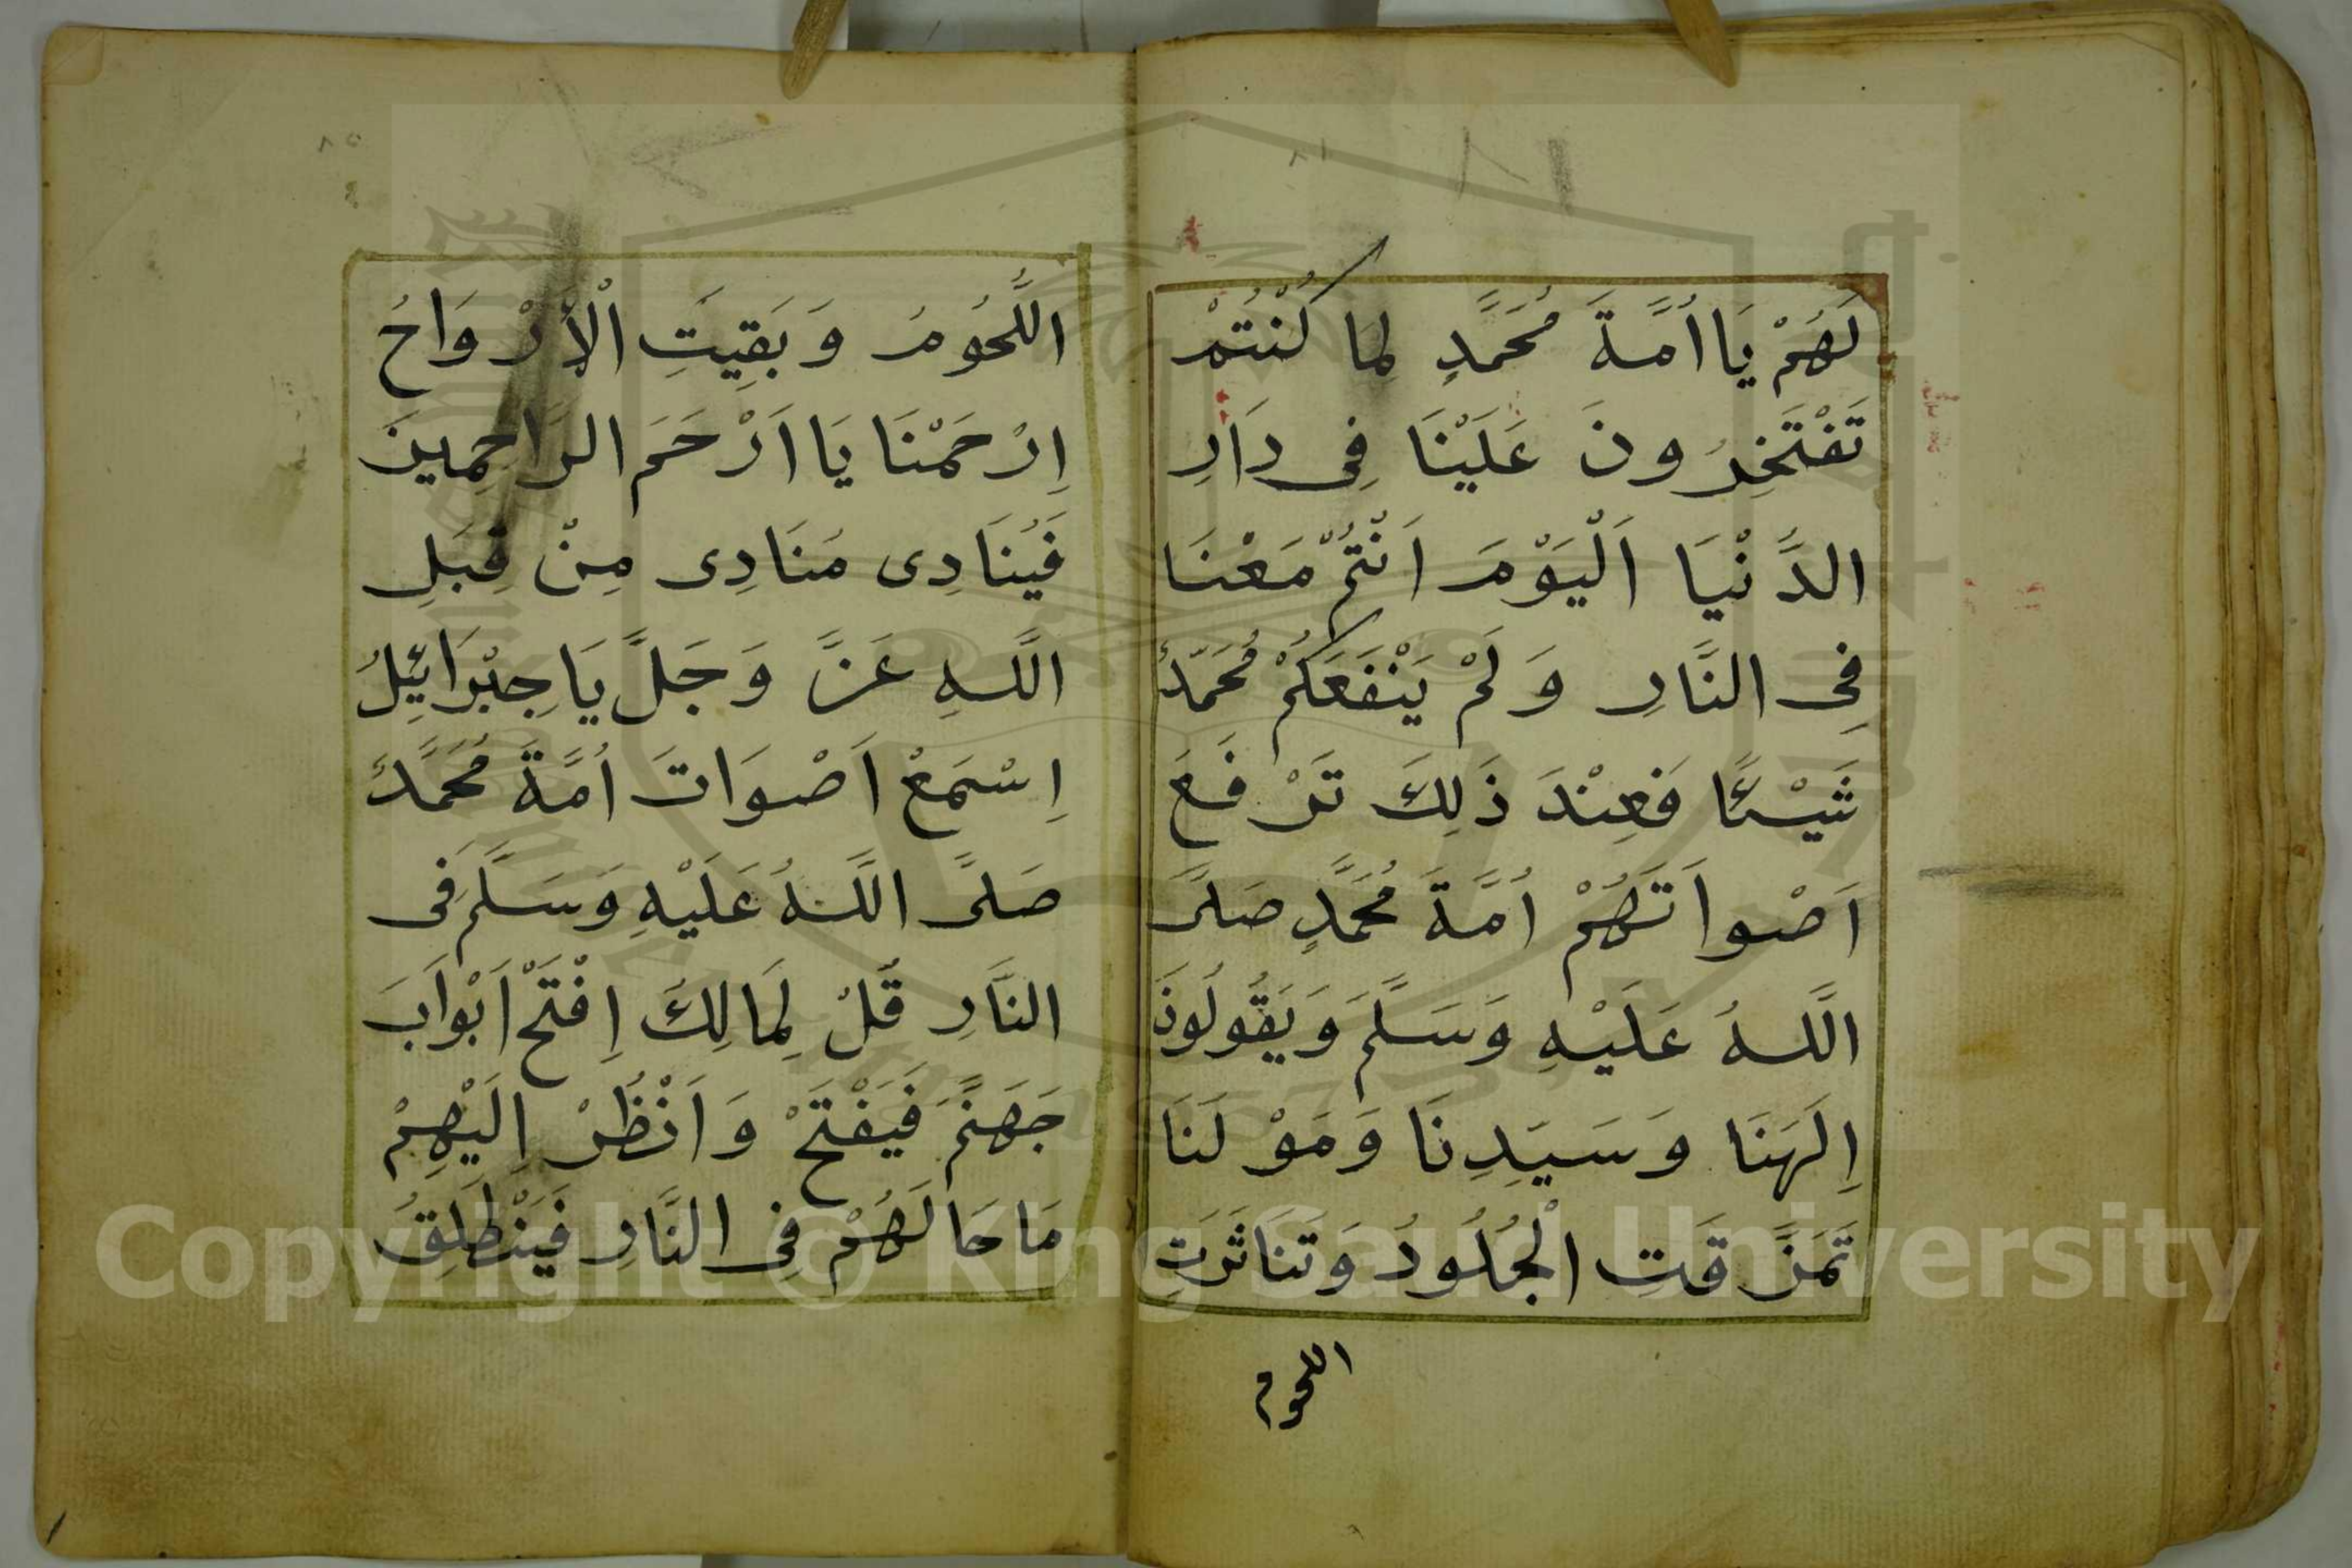 لَهُمْ يَا اُمَّةَ مُحَمَّدٍ لِمَا كُنْتُمْ
تَفْتَخِرُونَ عَلَيْنَا فِى دَارِ
الدُّنْيَا اَلْيَوْمَ اَنْتُمْ مَعْنَا
فِى النَّارِ وَلَمْ يَنْفَعَكُمْ مُحَمَّدٌ
شَيْئًا فَعِنْدَ ذَلِكَ تَرْفَعَ
اَصْواتَهُمْ اُمَّةَ مُحَمَّدٍ صَلَّى
اللَّهُ عَلَيْهِ وَسَلَّمَ وَيَقُولُونَ
اِلَهَنَا وَسَيِّدِنَا وَمَوْلَنَا
تَمَزَّقَتِ الْجُلُودُ وَتَنَاثَرَتِ
اللحوم
اللُّحُومُ وَبَقِيَتِ الْأَرْوَاحُ
اِرْحَمْنَا يَا اَرْحَمَ الرَاحِمِينَ
فَيُنَادِى مُنَادِى مِنْ قِبَلِ
اللَّهِ عَزَّ وَجَلَّ يَا جِبْرَائِيلُ
اِسْمَعْ اَصْوَاتَ اُمَّةَ مُحَمَّدَ
صَلَّى اللَّهُ عَلَيْهِ وَسَلَّمَ فِى
النَّارِ قُلْ لِمَالِكَ اِفْتَحْ اَبْوَابَ
جَهَنَّمَ فَيَفْتَحْ وَانْظُرْ اِلَيْهِمْ
مَا حَالَهُمْ فِى النَّارِ فَيَنْطَلِقُ
Copyright © King Saud University